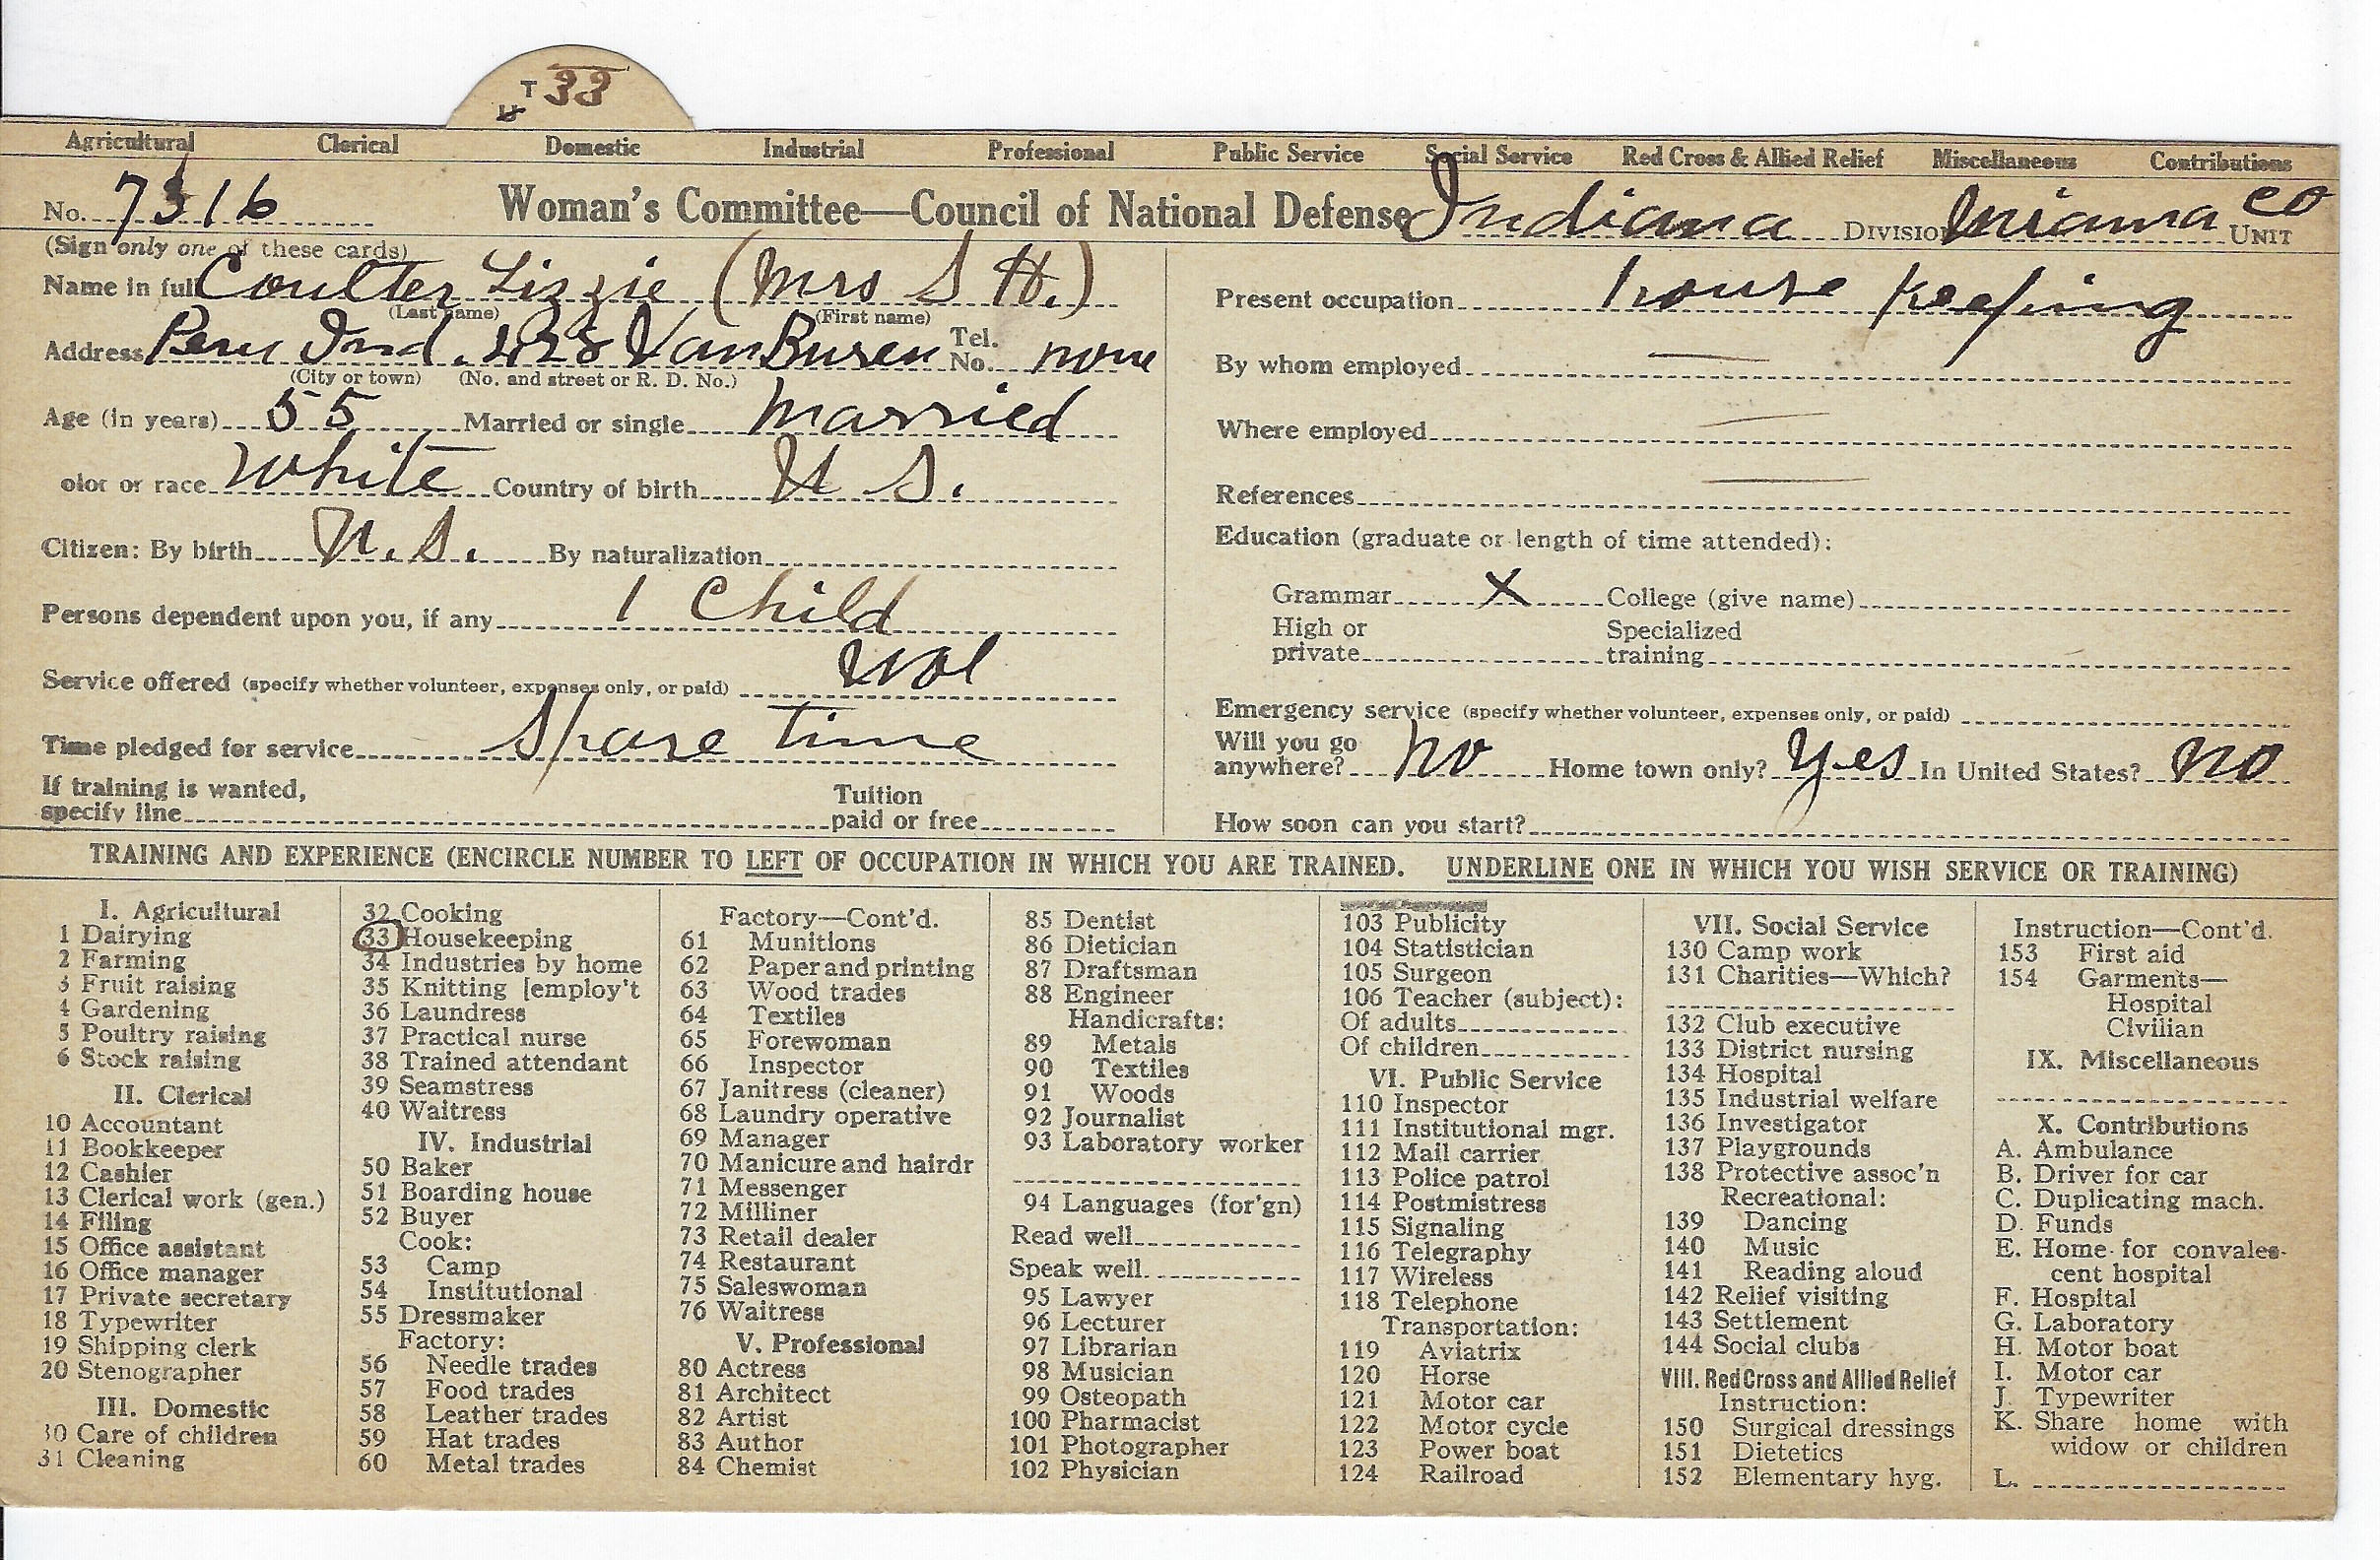 T 33
Agricultural Clerical Domestic Industrial Professional Public Service Social Service Red Cross & Allied Relief Miscellaneous Contributions
No. 7316 Woman's Committee—Council of National Defense Indiana Division Miami Co Unit
(Sign only one of these cards)
Name in full Coulter Lizzie (Mrs S H.)
(Last name) (First name)
Address Peru Ind. 428 Van Buren Tel. No. none
(City or town) (No. and street or R. D. No.)
Age (in years) 55 Married or single Married
olor or race White Country of birth U S.
Citizen: By birth U. S. By naturalization
Persons dependent upon you, if any 1 Child
Service offered (specify whether volunteer, expenses only, or paid) Vol
Time pledged for service Spare time
If training is wanted,
specify line Tuition paid or free
Present occupation house keeping
By whom employed —
Where employed —
References —
Education (graduate or length of time attended):
Grammar X College (give name)
High or private Specialized training
Emergency service (specify whether volunteer, expenses only, or paid)
Will you go anywhere? No Home town only? Yes In United States? No
How soon can you start?
TRAINING AND EXPERIENCE (ENCIRCLE NUMBER TO LEFT OF OCCUPATION IN WHICH YOU ARE TRAINED. UNDERLINE ONE IN WHICH YOU WISH SERVICE OR TRAINING)
I. Agricultural
1 Dairying
2 Farming
3 Fruit raising
4 Gardening
5 Poultry raising
6 Stock raising
II. Clerical
10 Accountant
11 Bookkeeper
12 Cashier
13 Clerical work (gen.)
14 Filing
15 Office assistant
16 Office manager
17 Private secretary
18 Typewriter
19 Shipping clerk
20 Stenographer
III. Domestic
30 Care of children
31 Cleaning
32 Cooking
33 Housekeeping
34 Industries by home
35 Knitting [employ't
36 Laundress
37 Practical nurse
38 Trained attendant
39 Seamstress
40 Waitress
IV. Industrial
50 Baker
51 Boarding house
52 Buyer
Cook:
53 Camp
54 Institutional
55 Dressmaker
Factory:
56 Needle trades
57 Food trades
58 Leather trades
59 Hat trades
60 Metal trades
Factory—Cont'd.
61 Munitions
62 Paper and printing
63 Wood trades
64 Textiles
65 Forewoman
66 Inspector
67 Janitress (cleaner)
68 Laundry operative
69 Manager
70 Manicure and hairdr
71 Messenger
72 Milliner
73 Retail dealer
74 Restaurant
75 Saleswoman
76 Waitress
V. Professional
80 Actress
81 Architect
82 Artist
83 Author
84 Chemist
85 Dentist
86 Dietician
87 Draftsman
88 Engineer
Handicrafts:
89 Metals
90 Textiles
91 Woods
92 Journalist
93 Laboratory worker
94 Languages (for'gn)
Read well
Speak well
95 Lawyer
96 Lecturer
97 Librarian
98 Musician
99 Osteopath
100 Pharmacist
101 Photographer
102 Physician
103 Publicity
104 Statistician
105 Surgeon
106 Teacher (subject):
Of adults
Of children
VI. Public Service
110 Inspector
111 Institutional mgr.
112 Mail carrier
113 Police patrol
114 Postmistress
115 Signaling
116 Telegraphy
117 Wireless
118 Telephone
Transportation:
119 Aviatrix
120 Horse
121 Motor car
122 Motor cycle
123 Power boat
124 Railroad
VII. Social Service
130 Camp work
131 Charities—Which?
132 Club executive
133 District nursing
134 Hospital
135 Industrial welfare
136 Investigator
137 Playgrounds
138 Protective assoc'n
Recreational:
139 Dancing
140 Music
141 Reading aloud
142 Relief visiting
143 Settlement
144 Social clubs
VIII. Red Cross and Allied Relief
Instruction:
150 Surgical dressings
151 Dietetics
152 Elementary hyg.
Instruction—Cont'd.
153 First aid
154 Garments—
Hospital
Civilian
IX. Miscellaneous
X. Contributions
A. Ambulance
B. Driver for car
C. Duplicating mach.
D. Funds
E. Home for convales-
cent hospital
F. Hospital
G. Laboratory
H. Motor boat
I. Motor car
J. Typewriter
K. Share home with
widow or children
L.